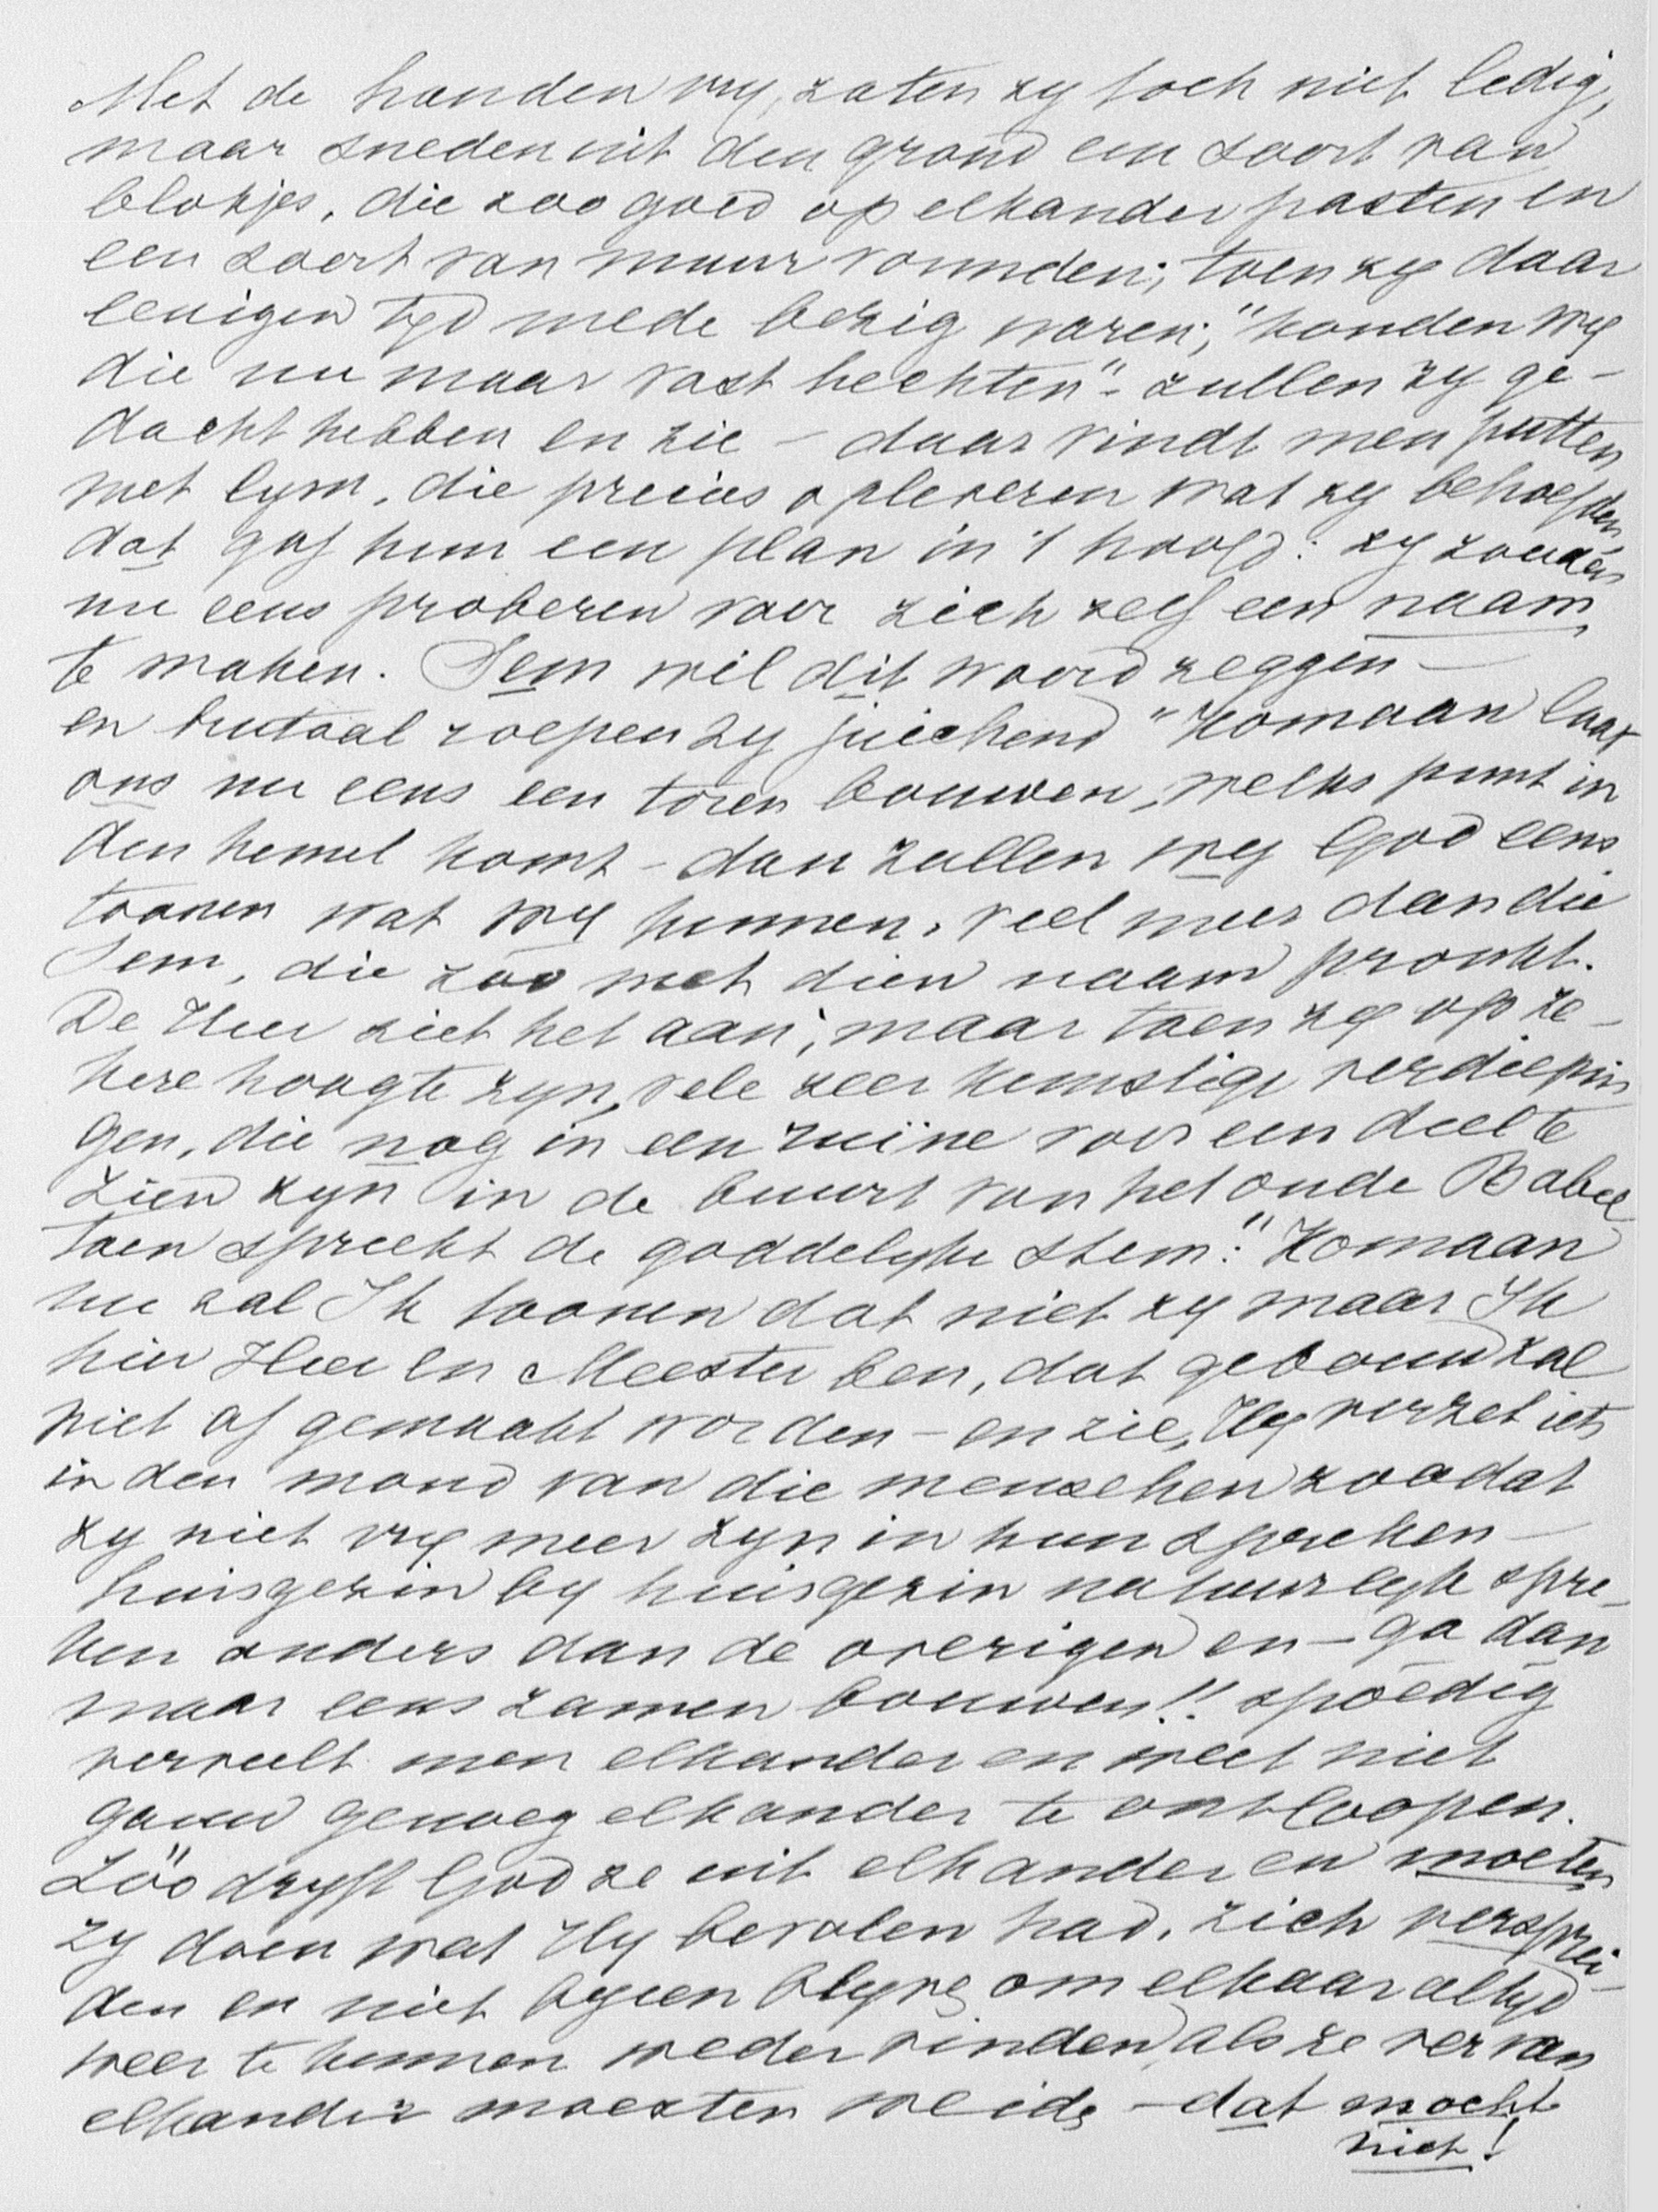 Met de handen vrij, zaten zy toch niet ledig,
maar sneden uit den grond een soort van
blokjes, die zoo goed op elkander pasten en
een soort van muur vormden; toen zy daar
eenigen tyd mede bezig waren; "konden wy
die nu maar vast hechten" - zullen zy ge-
dacht hebben en zie - daar vindt men putten
met lym, die precies opleveren wat zy behoefden,
dat gaf hun een plan in 't hoofd: zy zouden
nu eens proberen voor zich zelf een naam
te maken. Sem wil dit woord zeggen -
en brutaal roepen zy juichend "Komaan laat
ons nu eens een toren bouwen, welks punt in
den hemel komt - dan zullen wy God eens
toonen wat wy kunnen, veel meer dan die
Sem, die zóó met dien naam pronkt.
De Heer ziet het aan, maar toen zy op ze-
kere hoogte zyn, vele zeer kunstige verdiepin
gen, die nog in een ruïne voor een deel te
zien zyn in de buurt van het oude Babel
toen spreekt de goddelyke stem: "Komaan
nu zal Ik toonen dat niet zy maar Ik
hier Heer en Meester ben, dat gebouw zal
niet af gemaakt worden - en zie, Hy verzet iets
in den mond van die menschen zoodat
zy niet vry meer zyn in hun spreken -
huisgezin by huisgezin natuurlyk spre-
ken anders dan de overigen en - ga dan
maar eens zamen bouwen!! spoedig
verveelt men elkander en weet niet
gauw genoeg elkander te ontloopen.
Zóó dryft God ze uit elkander en moeten
zy doen wat Hy bevolen had, zich versprei-
den en niet byeen blyve om elkaar altyd
weer te kunnen weder vinden, als ze ver van
elkander moesten weide - dat mocht
niet!